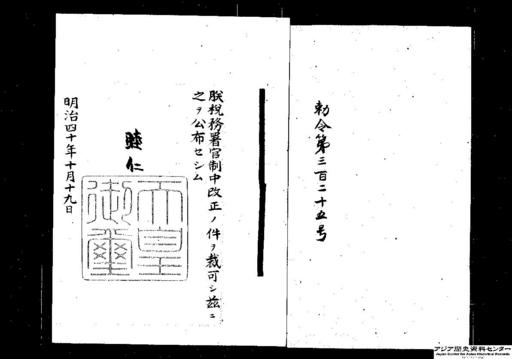 勅令第三百二十五号
朕税務署官制中改正ノ件ヲ裁可シ茲ニ
之ヲ公布セシム
睦仁
天皇
御璽
明治四十年十月十九日
アジア歴史資料センター
Japan Center for Asian Historical Records